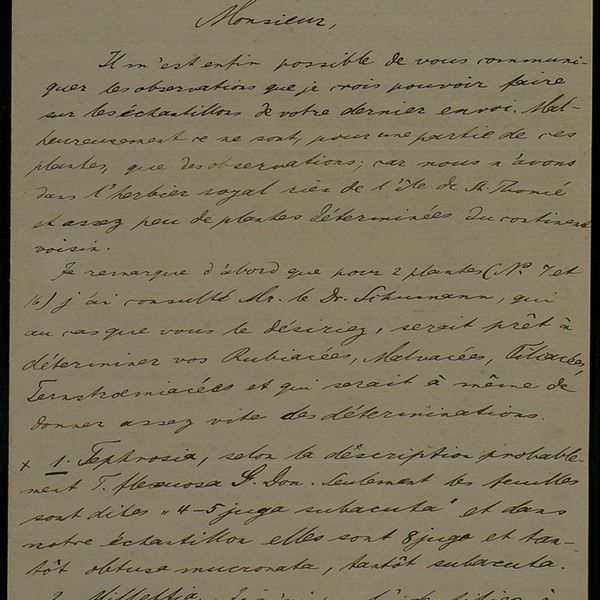 Monsieur,
Il m'est enfin possible de vous communi-
quer les observations que je crois pouvoir faire
sur les échantillons de votre dernier envoi. Mal-
heureusement ce ne sont, pour une partie de ces
plantes, que des observations; car nous n'avons
dans l'herbier royal rien de l'île de St. Thomé
et assez peu de plantes déterminées du continent
voisin.
Je remarque d'abord que pour 2 plantes (No. 7 et
16) j'ai consulté Mr. le Dr. Schumann, qui
au cas que vous le désiriez, serait prêt à
déterminer vos Rubiacées, Malvacées, Tiliacées,
Ternstroemiacées et qui serait à même de
donner assez vite des déterminations.
x 1. Tephrosia, selon la déscription probable-
ment T. flexuosa G. Don. Seulement les feuilles
sont dites „4-5 juga subacuta" et dans
notre échantillon elles sont 8 juga et tan-
tôt obtusa mucronata, tantôt subacuta.
2. Millettia.